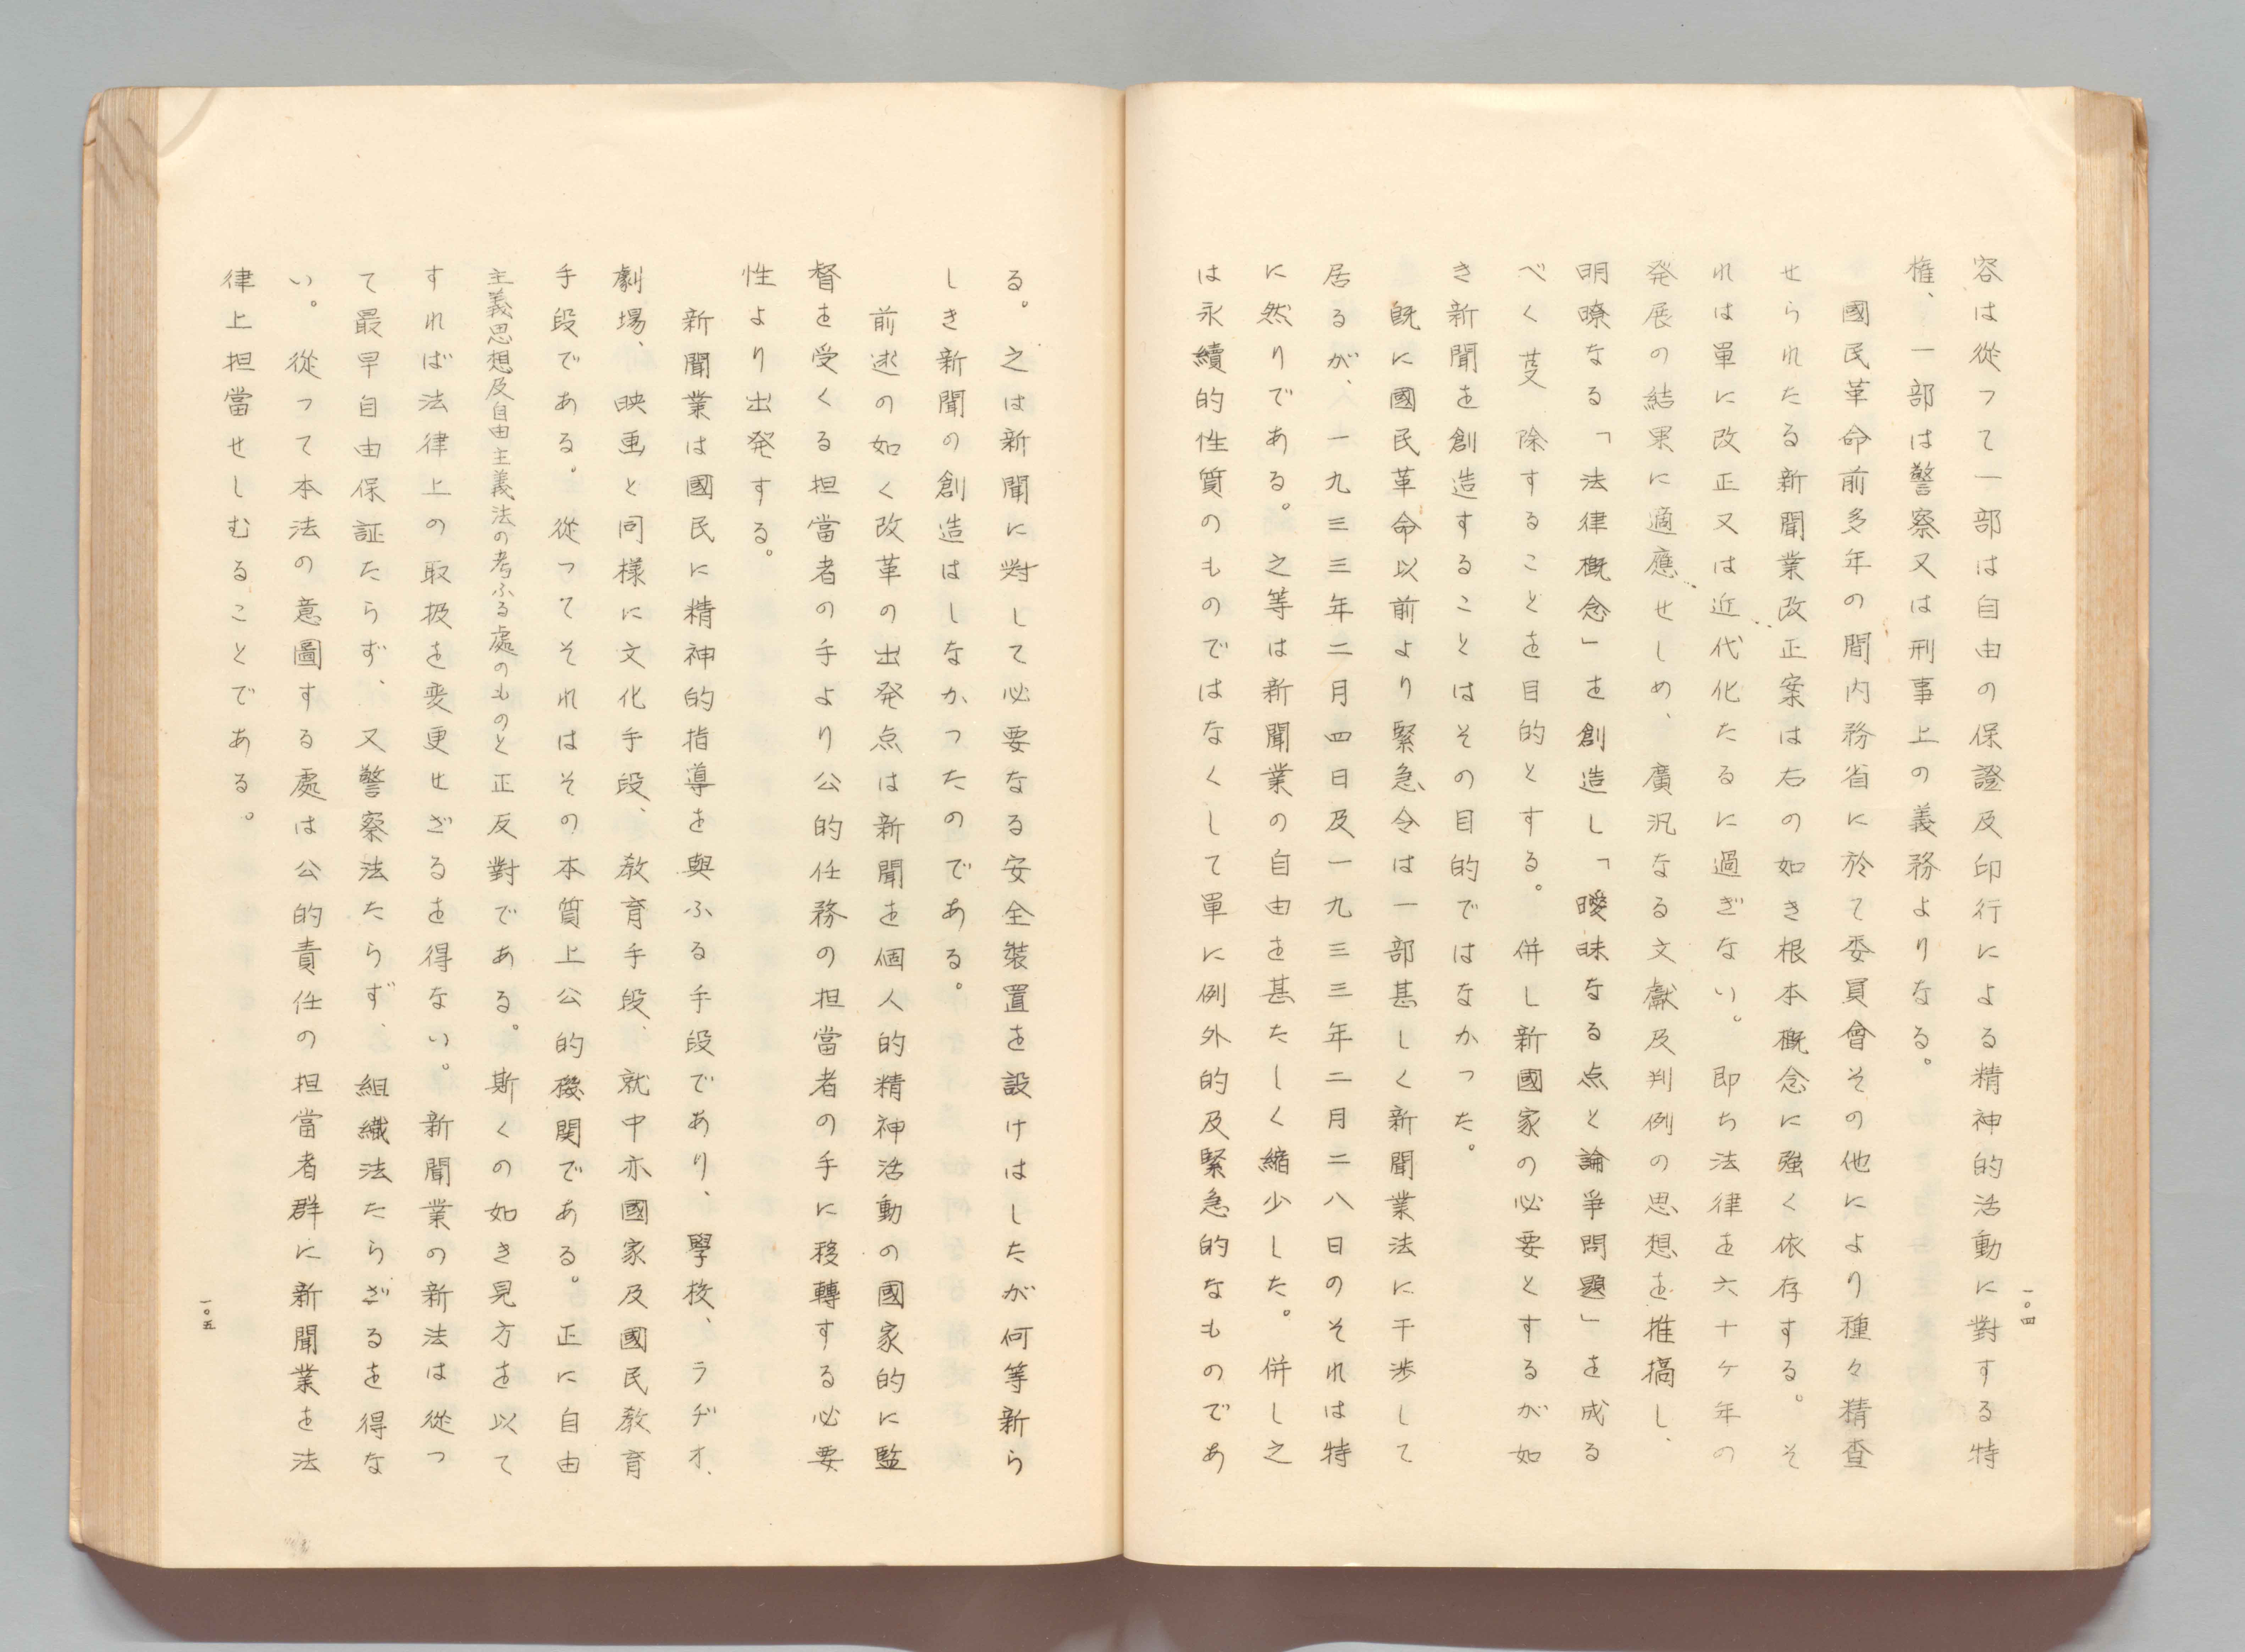 容は從つて一部は自由の保證及印行による精神的活動に對する特
権、一部は警察又は刑事上の義務よりなる。
國民革命前多年の間内務省に於て委員會その他により種々精査
せられたる新聞業改正案は右の如き根本概念に強く依存する。そ
れは單に改正又は近代化たるに過ぎない。即ち法律を六十ケ年の
発展の結果に適應せしめ、廣汎なる文獻及判例の思想を推摘し、
明瞭なる「法律概念」を創造し「曖昧なる点と論爭問題」を成る
べく芟除することを目的とする。併し新國家の必要とするが如
き新聞を創造することはその目的ではなかつた。
既に國民革命以前より緊急令は一部甚しく新聞業法に干渉して
居るが、一九三三年二月四日及一九三三年二月二八日のそれは特
に然りである。之等は新聞業の自由を甚たしく縮少した。併し之
は永續的性質のものではなくして單に例外的及緊急的なものであ
一〇四
る。之は新聞に対して必要なる安全裝置を設けはしたが何等新ら
しき新聞の創造はしなかつたのである。
前述の如く改革の出発点は新聞を個人的精神活動の國家的に監
督を受くる担當者の手より公的任務の担當者の手に移轉する必要
性より出発する。
新聞業は國民に精神的指導を與ふる手段であり、學校、ラヂオ、
劇場、映画と同様に文化手段、教育手段、就中亦國家及國民教育
手段である。從つてそれはその本質上公的機関である。正に自由
主義思想及自由主義法の考ふる處のものと正反對である。斯くの如き見方を以て
すれば法律上の取扱を変更せざるを得ない。新聞業の新法は從つ
て最早自由保証たらず、又警察法たらず、組織法たらざるを得な
い。從つて本法の意圖する處は公的責任の担當者群に新聞業を法
律上担當せしむることである。
一〇五